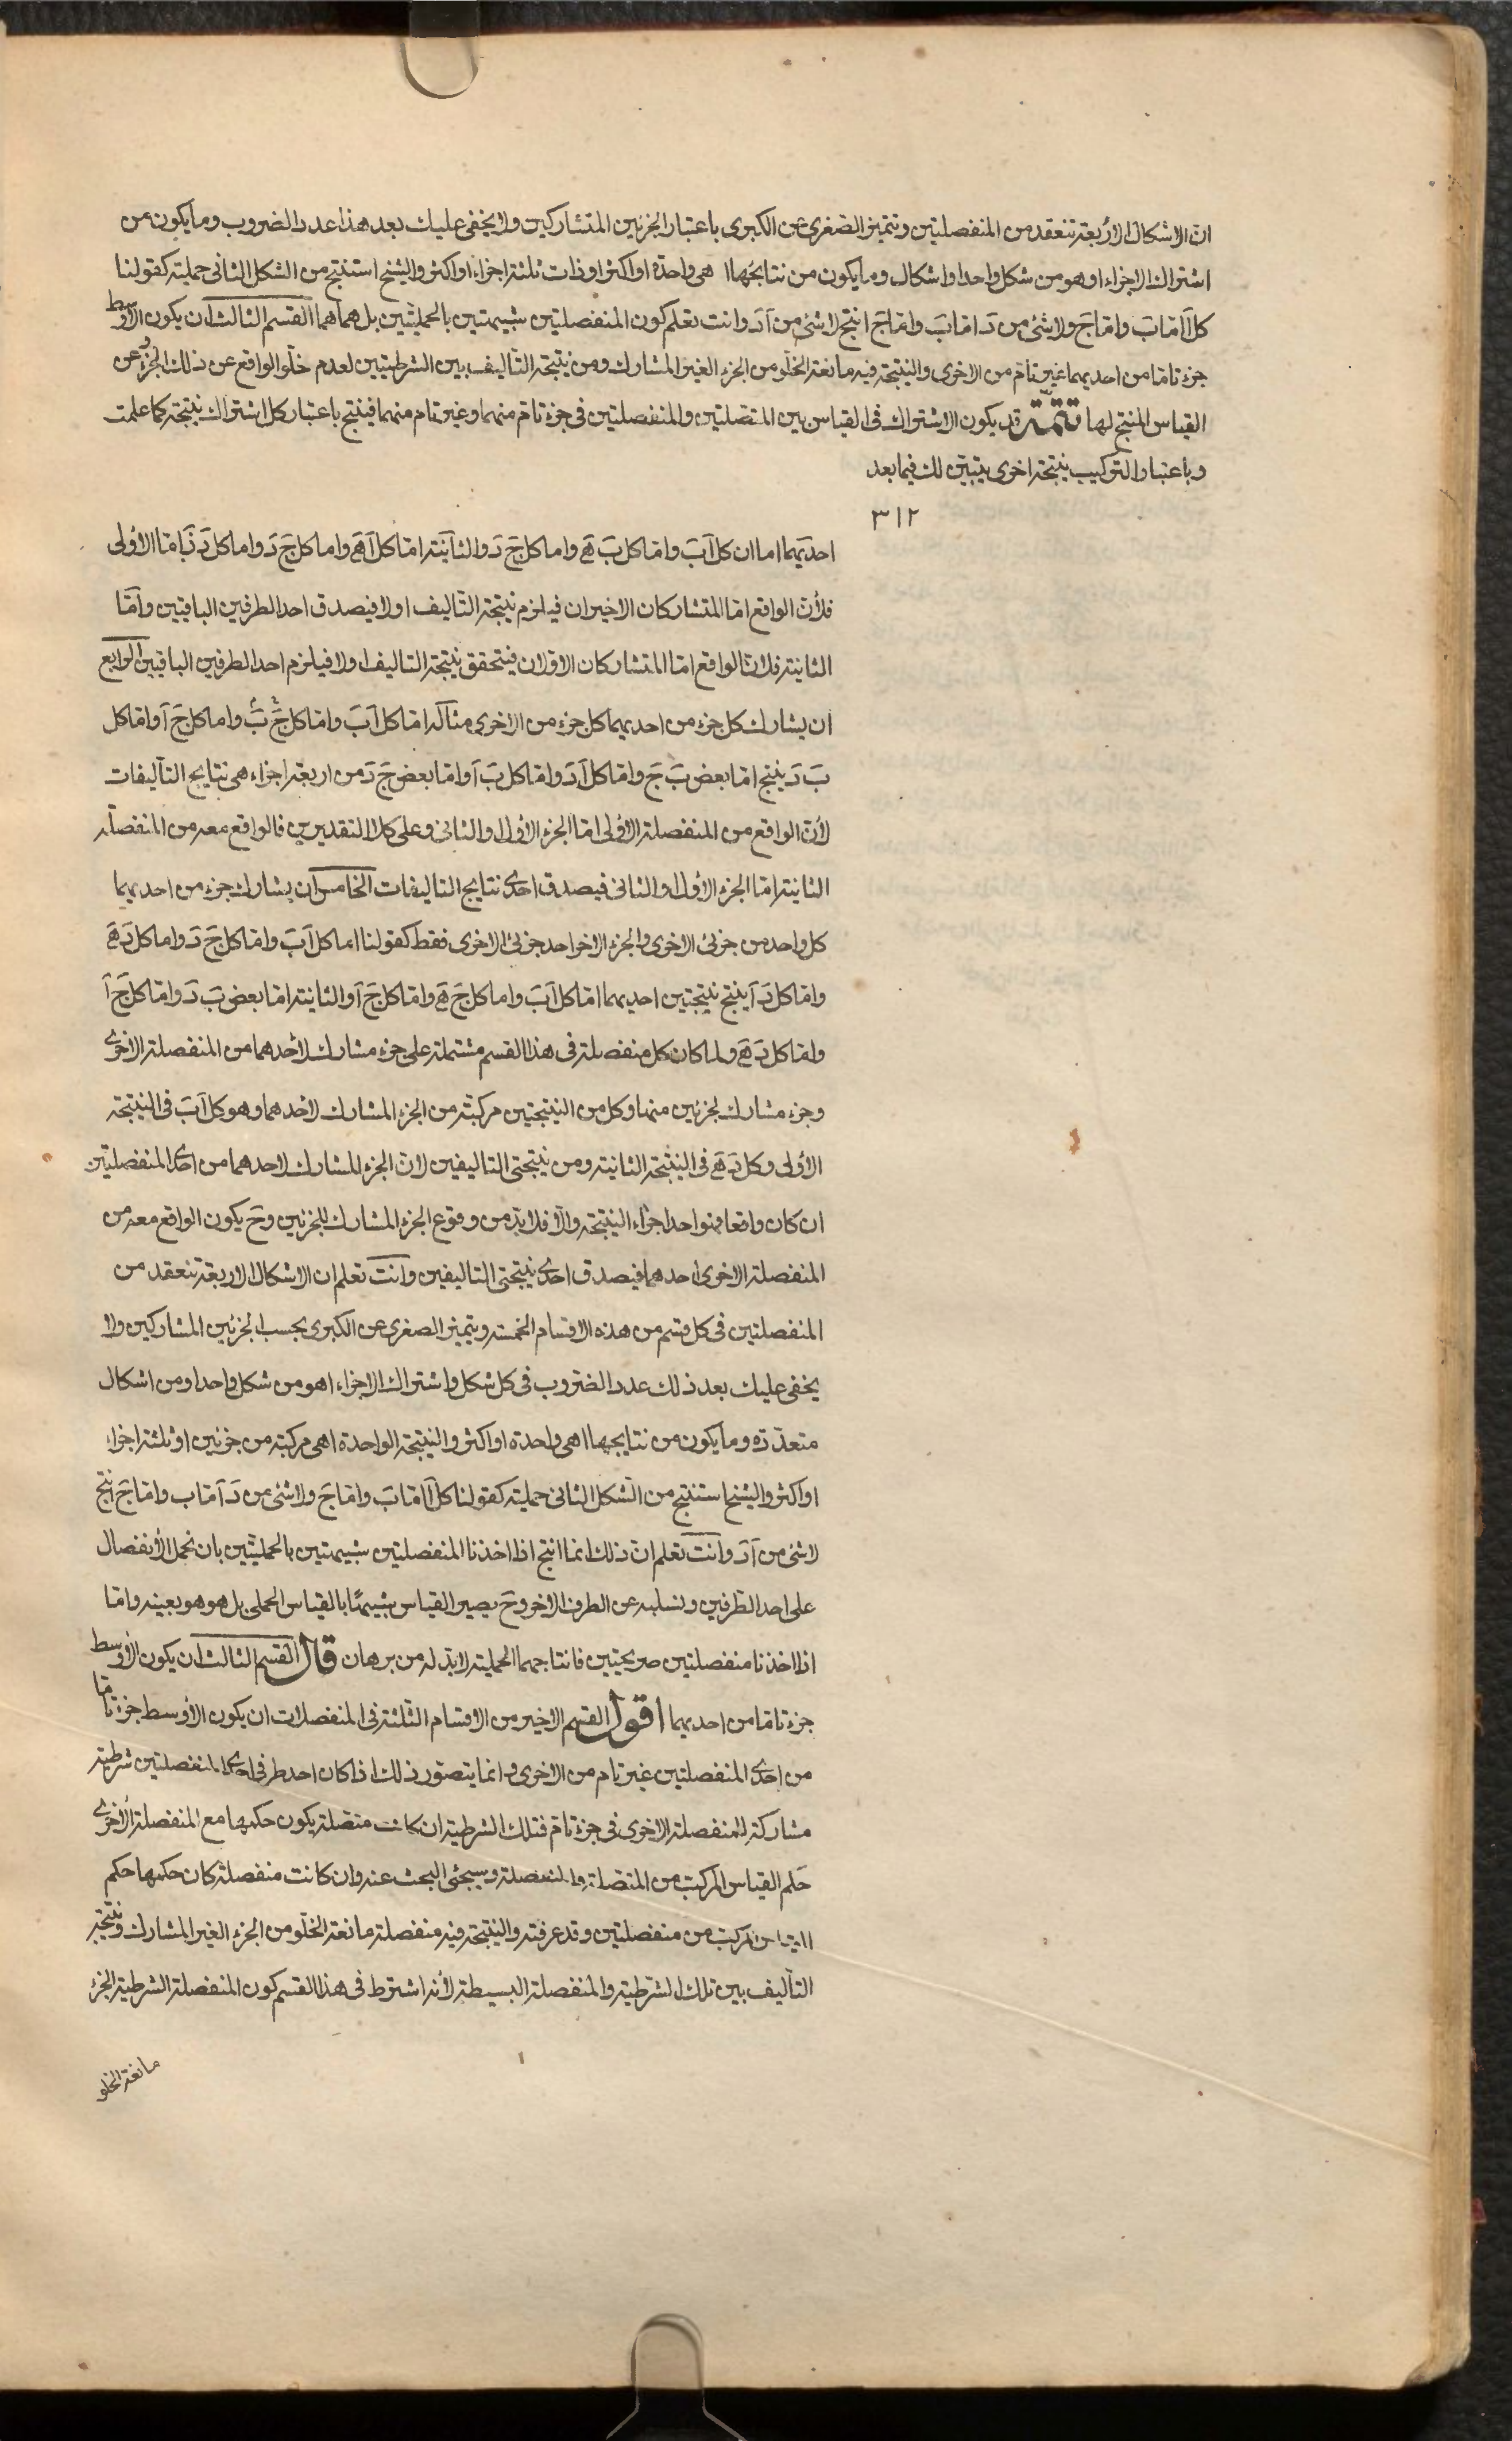 ان الاشكال الأربعة تنعقد من المنفصلتين وتتميز الصغرى عن الكبرى باعتبار الجزئين المتشاركين ولا يخفى عليك بعد هذا عدد الضروب وما يكون من
اشتراك الاجزاء اهو من شكل واحد او اشكال وما يكون من نتايجها اهى واحدة او اكثر او ذات ثلثة اجزاء او اكثر والشيخ استنتج من الشكل الثانى حملية كقولنا
كل آ اما بَ واما جَ ولا شئ من دَ اما بَ واما جَ انتج لا شئ من آ دَ وانت تعلم كون المنفصلتين شبيهتين بالحمليتين بل هما هما القسم الثالث ان يكون الاوسط
جزء تاما من احديهما غير تام من الاخرى والنتيجة فيه مانعة الخلو من الجزء الغير المشارك ومن نتيجة التأليف بين الشرطيتين لعدم خلو الواقع عن ذلك الجزء وعن
القياس المنتج لها تتمة قد يكون الاشتراك فى القياس بين المتصلتين والمنفصلتين فى جزء تام منهما وغير تام منهما فينتج باعتبار كل اشتراك نتيجة كما علمت
وباعتبار التركيب نتيجة اخرى يتبين لك فيما بعد
٣١٢
احديهما اما ان كل آ بَ واما كل بَ هَ واما كل جَ دَ والثانية اما كل آ هَ واما كل جَ دَ واما كل دَ زَ اما الأولى
فلأن الواقع اما المتشاركان الاخيران فيلزم نتيجة التأليف اولا فيصدق احد الطرفين الباقيين واما
الثانية فلان الواقع اما المتشاركان الاولان فيتحقق نتيجة التاليف او لا فيلزم احد الطرفين الباقيين الرابع
ان يشارك كل جزء من احديهما كل جزء من الاخرى مثاله اما كل آ بَ واما كل جَ بَ واما كل جَ آ واما كل
بَ دَ ينتج اما بعض بَ جَ واما كل آ دَ واما كل بَ آ واما بعض جَ دَ من اربعة اجزاء هى نتايج التأليفات
لأن الواقع من المنفصلة الأولى اما الجزء الأول او الثانى وعلى كلا التقديرين فالواقع معه من المنفصلة
الثانية اما الجزء الأول او الثانى فيصدق احدى نتايج التاليفات الخامس ان يشارك جزء من احديهما
كل واحد من جزئى الاخرى والجزء الاخر احد جزئى الاخرى فقط كقولنا اما كل آ بَ واما كل جَ دَ واما كل دَ هَ
واما كل دَ آ ينتج نتيجتين احديهما اما كل آ بَ واما كل جَ هَ واما كل جَ آ والثانية اما بعض بَ دَ واما كل جَ آ
واما كل دَ هَ ولما كان كل منفصلة فى هذا القسم مشتملة على جزء مشارك لأحدهما من المنفصلة الاخرى
وجزء مشارك لجزئين منها وكل من النتيجتين مركبة من الجزء المشارك لاحدهما وهو كل آ بَ فى النتيجة
الأولى وكل دَ هَ فى النتيجة الثانية ومن نتيجتى التاليفين لان الجزء المشارك لاحدهما من احدى المنفصلتين
ان كان واقعا فهو احد اجزاء النتيجة والا فلا بد من وقوع الجزء المشارك للجزئين وحَ يكون الواقع معه من
المنفصلة الاخرى احدهما فيصدق احدى نتيجتى التاليفين وانت تعلم ان الاشكال الاربعة تنعقد من
المنفصلتين فى كل قسم من هذه الاقسام الخمسة ويتميز الصغرى عن الكبرى بحسب الجزئين المشاركين ولا
يخفى عليك بعد ذلك عدد الضروب فى كل شكل واشتراك الاجزاء اهو من شكل واحد او من اشكال
متعددة وما يكون من نتايجها اهى واحدة او اكثر والنتيجة الواحدة اهى مركبة من جزئين او ثلثة اجزاء
او اكثر والشيخ استنتج من الشكل الثانى حملية كقولنا كل آ اما بَ واما جَ ولا شئ من دَ آ ما ب واما جَ ينتج
لا شئ من آ دَ وانت تعلم ان ذلك انما انتج اذا اخذنا المنفصلتين شبيهتين بالحمليتين بان نحمل الأنفصال
على احد الطرفين ونسلبه عن الطرف الاخر وحَ يصير القياس شبيهًا بالقياس الحملى بل هو هو بعينه واما
اذا اخذنا منفصلتين صريحتين فانتاجهما الحملية لا بد له من برهان قال القسم الثالث ان يكون الأوسط
جزء تاما من احديهما اقول القسم الاخير من الاقسام الثلثة فى المنفصلات ان يكون الأوسط جزء تاما
من احدى المنفصلتين غير تام من الاخرى وانما يتصور ذلك اذا كان احد طرفى احدى المنفصلتين شرطية
مشاركة للمنفصلة الاخرى فى جزء تام فتلك الشرطية ان كانت متصلة يكون حكمها مع المنفصلة الأخرى
حكم القياس المركب من المتصلة والمنفصلة وسيجئى البحث عنه وان كانت منفصلة كان حكمها حكم
القياس المركب من منفصلتين وقد عرفته والنتيجة فيه منفصلة مانعة الخلو من الجزء الغير المشارك ونتيجة
التأليف بين تلك الشرطية والمنفصلة البسيطة لأنه اشترط فى هذا القسم كون المنفصلة الشرطية الجزء
مانعة الخلو